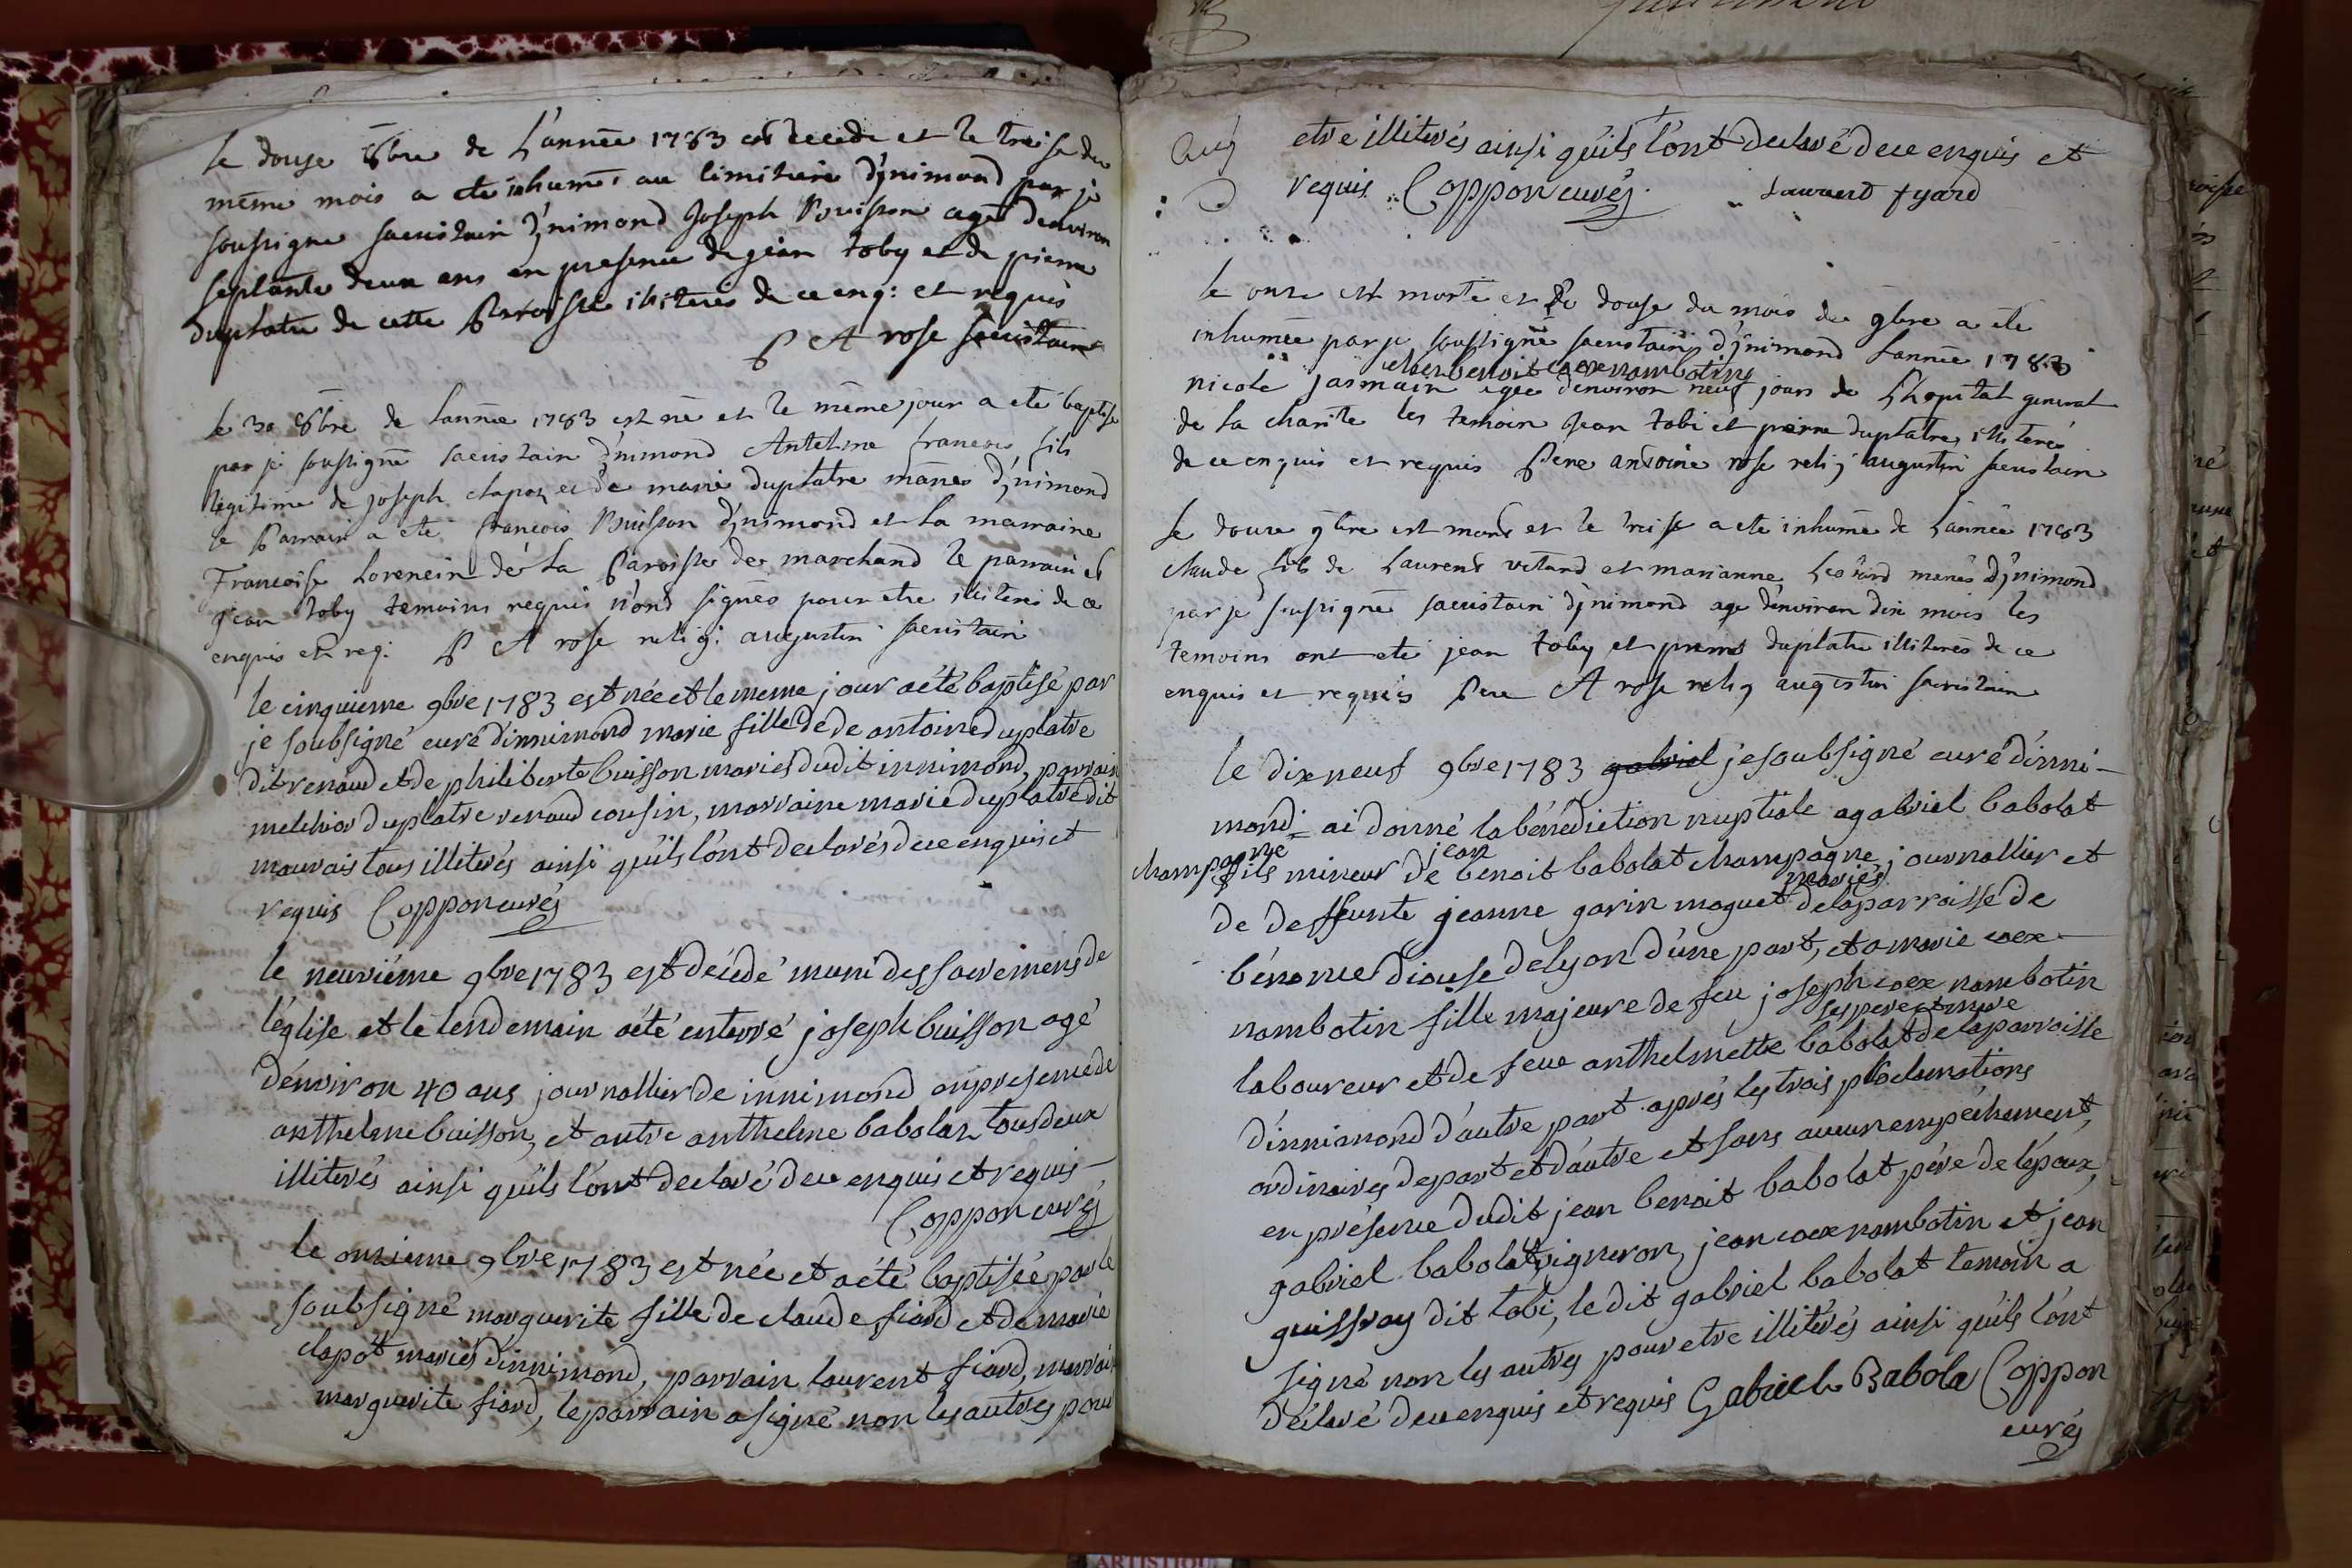 le douze 8bre de L'année 1783 est decede et le treise du
même mois a ete inhumé au simitiere d'jnimond par je
soussigne sacristain d'jnimond Joseph Buisson agé denviron
septante deux ans en presence de jean toby et de pierre
duplatre de cette Paroisse illiteres de ce enq: et requis
P A rose sacristain
le 30 8bre de lannée 1783 est né et le même jour a eté baptisé
par je soussigné sacristain d'jnimond Anthelme francois fils
legitime de joseph clapoz et de marie duplatre mariés d'jnimond
le Parrain a eté francois Buisson d'jnimond et la marraine
Francoise de la Paroisse de marchand le parrain et
jean toby temoins requis n'ond signés pour etre illiteres de ce
enquis et req: P A rose relig: augustin sacristain
le cinquieme 9bre 1783 est née et le meme jour a été baptisé par
je soubsigné curé d'innimond marie fille de de antoine duplatre
dit renaud et de philiberte buisson mariés dudit innimond, parrain
melchior duplatre renaud cousin, marraine marie duplatre dit
mauvais tous illiterés ainsi qu'ils l'ont declarés de ce enquis et
requis Coppon curés
le neuvième 9bre 1783 est décédé muni des sacremens de
l'église et le lendemain a été enterré joseph buisson agé
d'environ 40 ans journallier de innimond en presence de
anthelme buisson, et autre anthelme babolat tous deux
illiterés ainsi qu'ils l'ont declaré de ce enquis et requis
Coppon curés
le onzieme 9bre 1783 est née et a été baptisée par le
soubsigné marguerite fille de claude fiard et de marie
clapot mariés d'innimond, parrain laurent fiard, marrai
marguerite fiard, le parrain a signé non les autres pour
etre illiterés ainsi qu'ils l'ont declaré de ce enquis et
requis. Coppon curés. Laurent fyard
le onze est morte et le douse du mois de 9bre a eté
inhumée par je soussigné sacristain d'jnimond Lannée 1783
chez benoit coex nambotin
nicole jasmain agée denviron neuf jours de L'hopital general
de la charité les temoin jean tobi et pierre duplatre illiteres
de ce enquis et requis Pere antoine rose relig augustin sacristain
Le douze 9bre est mond et le treise a eté inhumé de L'année 1783
claude fils de Laurent et marianne mariés d'jnimond
par je soussigné sacristain d'jnimond agé denviron dix mois les
temoins ont eté jean toby et pierre duplatre illiterés de ce
enquis et requis Pere A rose relig augustin sacristain
le dix neuf 9bre 1783 gabriel je soubsigné curé d'inni-
mond ai donné la bénédiction nuptiale a gabriel babolat
champagne jean
fils mineur de benoit babolat champagne journallier et
mariés
de deffunte jeanne garin maguet de la parroisse de
bénonce diocese de lyon d'une part, et a marie coex
nambotin fille majeure de feu joseph coex nambotin
ses pere et mere
laboureur et de feue anthelmette babolat de la parroisse
d'innimond d'autre part après les trois proclamations
ordinaires de part et d'autre et sans aucun empéchement,
en présence dudit jean benoit babolat père de l'époux,
gabriel babolat vigneron, jean coex nambotin et jean
guissray dit tobi, le dit gabriel babolat temoin a
signé non les autres pour etre illitérés ainsi qu'ils l'ont
déclaré de ce enquis et requis Gabriel Babola Coppon
curés